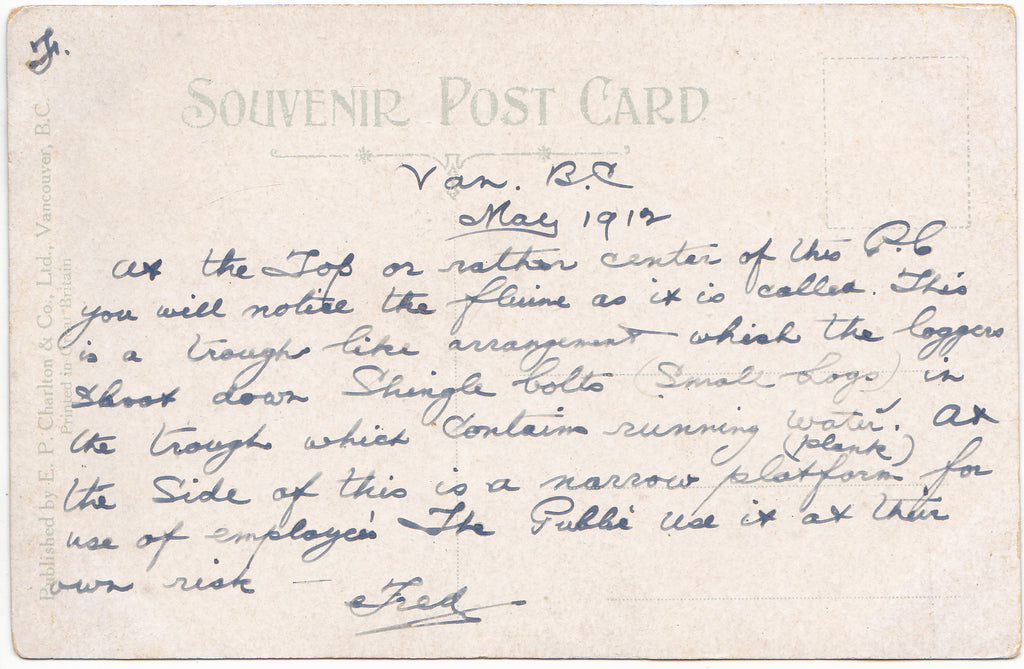 F.
SOUVENIR POST CARD
Van. B.C
May 1912
At the Top or rather center of this P.C
you will notice the flume as it is called. This
is a trough like arrangement which the loggers
shoot down Shingle bolts (Small Logs) in
the trough which contains running water. At
the Side of this is a narrow platform (plank) for
use of employees The Public use it at their
own risk —
Fred
Published by E. P. Charlton & Co., Ltd., Vancouver, B.C.
Printed in Great Britain